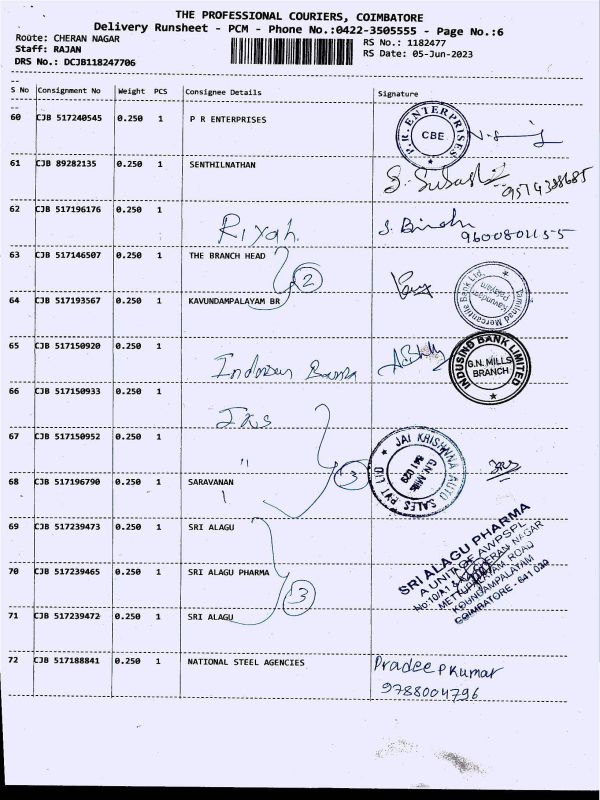 THE PROFESSIONAL COURIERS, COIMBATORE
Delivery Runsheet - PCM - Phone No.:0422-3505555 - Page No.:6
Route: CHERAN NAGAR RS No.: 1182477
Staff: RAJAN RS Date: 05-Jun-2023
DRS No.: DCJB118247706
S No Consignment No Weight PCS Consignee Details Signature
60 CJB 517240545 0.250 1 P R ENTERPRISES
P.R. ENTERPRISES CBE
61 CJB 89282135 0.250 1 SENTHILNATHAN
9514388685
62 CJB 517196176 0.250 1 Riyah
9600801155
63 CJB 517146507 0.250 1 THE BRANCH HEAD
2
64 CJB 517193567 0.250 1 KAVUNDAMPALAYAM BR
Tamilnad Mercantile Bank Ltd. Kavundampalayam
65 CJB 517150920 0.250 1
INDUSIND BANK LIMITED G.N. MILLS BRANCH
66 CJB 517150933 0.250 1
67 CJB 517150952 0.250 1 "
JAI KRISHNAA AUTO SALES PVT LTD G.N. Mills 641 029
3
68 CJB 517196790 0.250 1 SARAVANAN
69 CJB 517239473 0.250 1 SRI ALAGU
70 CJB 517239465 0.250 1 SRI ALAGU PHARMA
3
71 CJB 517239472 0.250 1 SRI ALAGU
SRI ALAGU PHARMA
A UNIT OF AWPSPL
No:10/A1 CHERAN NAGAR
METTUPALAYAM ROAD
KOUNDAMPALAYAM
COIMBATORE - 641 030
72 CJB 517188841 0.250 1 NATIONAL STEEL AGENCIES Pradeep Kumar
9788004796